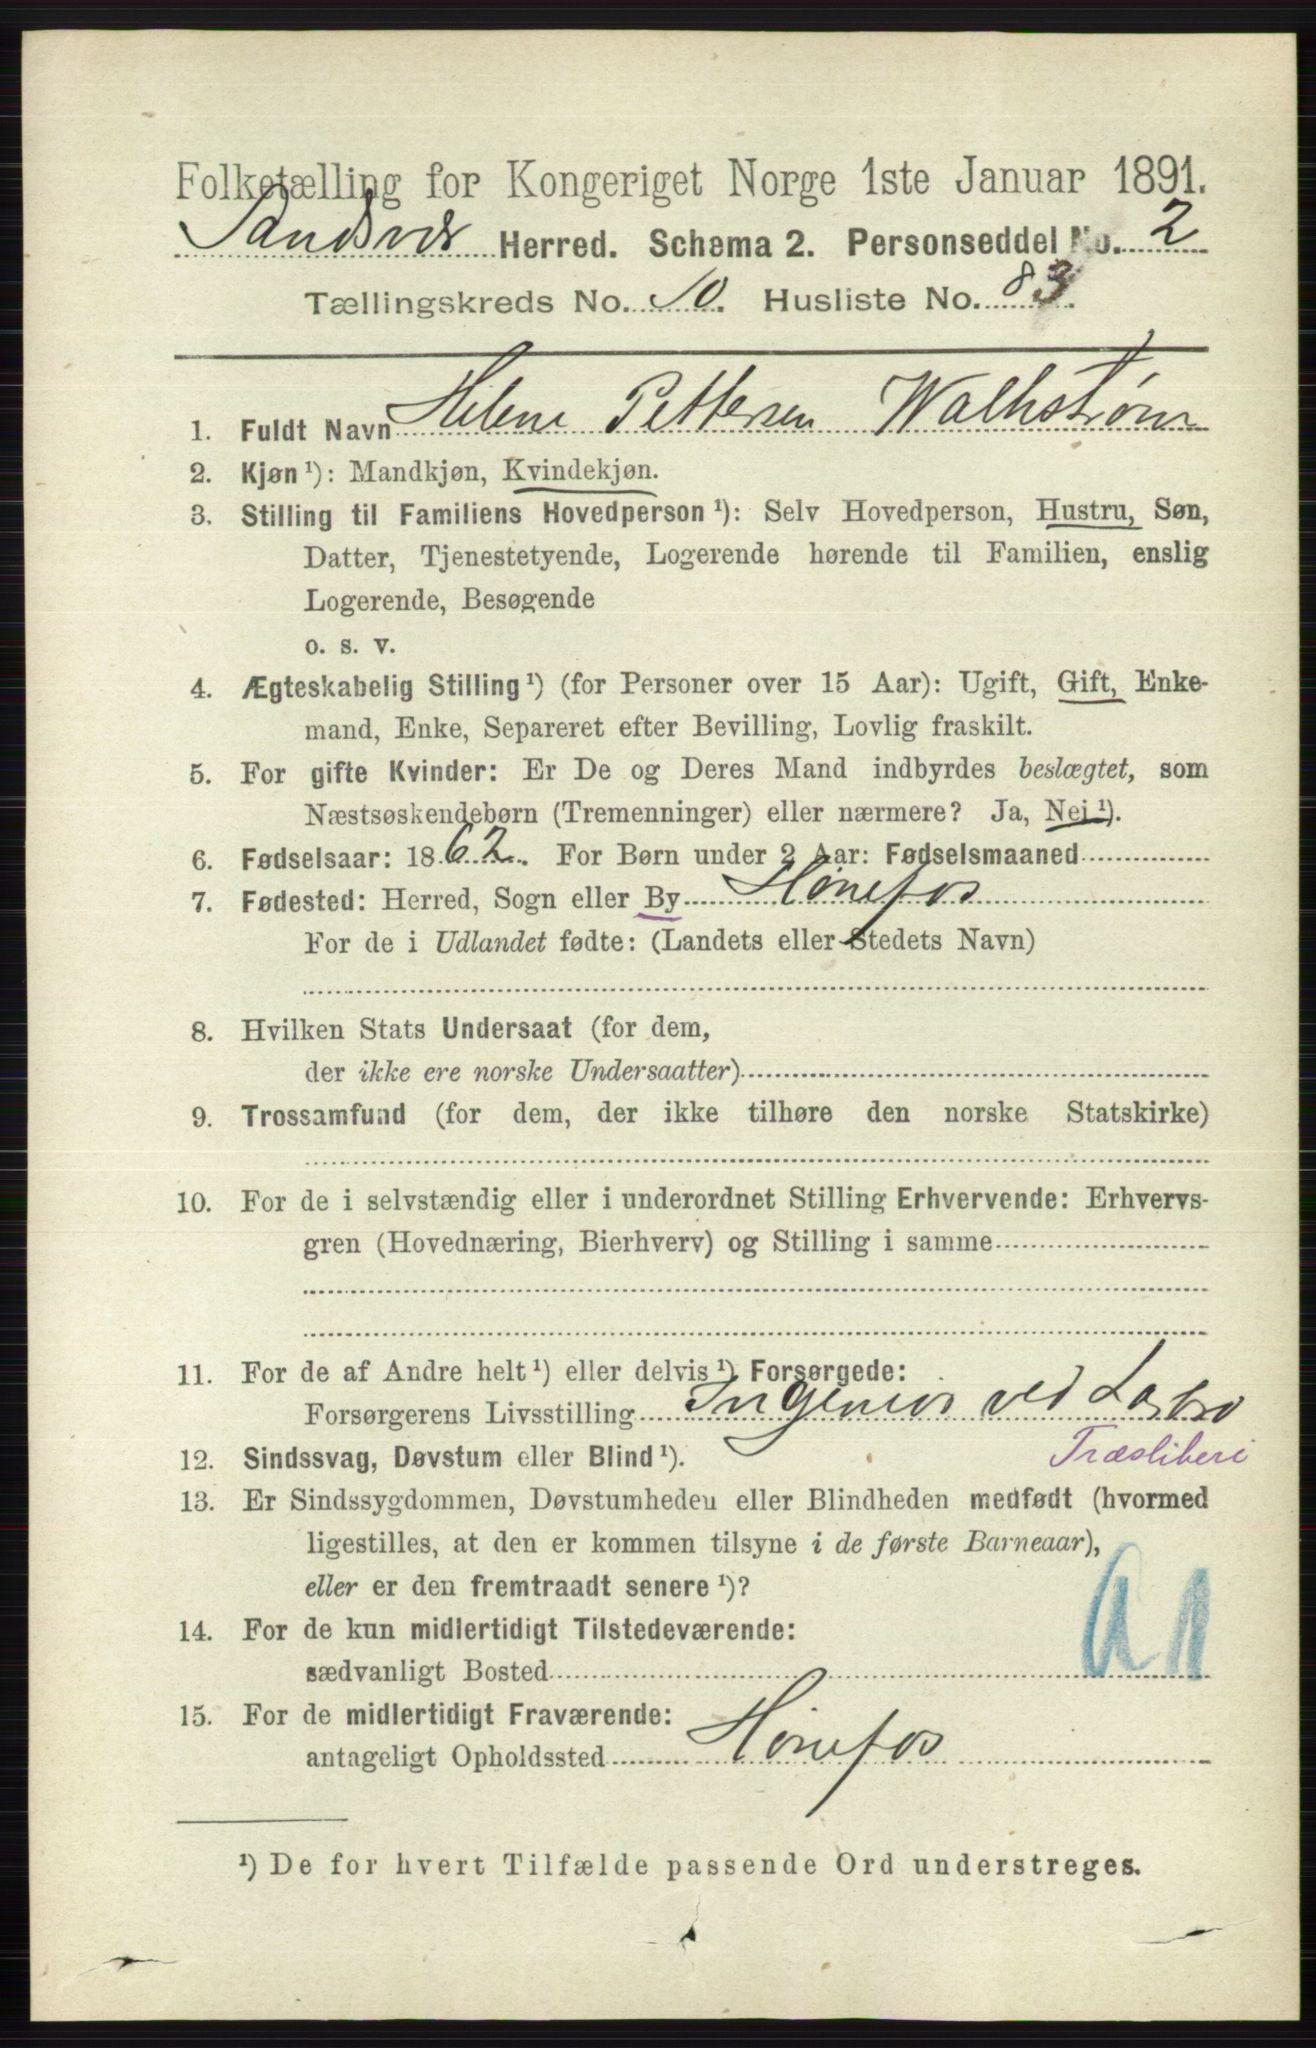 Folketælling for Kongeriget Norge 1ste Januar 1891.
Sandsvær Herred. Schema 2. Personseddel No. 2
Tællingskreds No. 10. Husliste No. 83.
1. Fuldt Navn Helene Pettersen Walhstrøm
2. Kjøn ¹): Mandkjøn, Kvindekjøn.
3. Stilling til Familiens Hovedperson ¹): Selv Hovedperson, Hustru, Søn,
Datter, Tjenestetyende, Logerende hørende til Familien, enslig
Logerende, Besøgende
o. s. v.
4. Ægteskabelig Stilling ¹) (for Personer over 15 Aar): Ugift, Gift, Enke-
mand, Enke, Separeret efter Bevilling, Lovlig fraskilt.
5. For gifte Kvinder: Er De og Deres Mand indbyrdes beslægtet, som
Næstsøskendebørn (Tremenninger) eller nærmere? Ja, Nei ¹).
6. Fødselsaar: 1862. For Børn under 2 Aar: Fødselsmaaned
7. Fødested: Herred, Sogn eller By Hønefos
For de i Udlandet fødte: (Landets eller Stedets Navn)
8. Hvilken Stats Undersaat (for dem,
der ikke ere norske Undersaatter)
9. Trossamfund (for dem, der ikke tilhøre den norske Statskirke)
10. For de i selvstændig eller i underordnet Stilling Erhvervende: Erhvervs-
gren (Hovednæring, Bierhverv) og Stilling i samme
11. For de af Andre helt ¹) eller delvis ¹) Forsørgede:
Forsørgerens Livsstilling Ingeniør ved Labro
Træsliberi
12. Sindssvag, Døvstum eller Blind ¹).
13. Er Sindssygdommen, Døvstumheden eller Blindheden medfødt (hvormed
ligestilles, at den er kommen tilsyne i de første Barneaar),
eller er den fremtraadt senere ¹)?
14. For de kun midlertidigt Tilstedeværende:
sædvanligt Bosted
15. For de midlertidigt Fraværende:
antageligt Opholdssted Hønefos
¹) De for hvert Tilfælde passende Ord understreges.